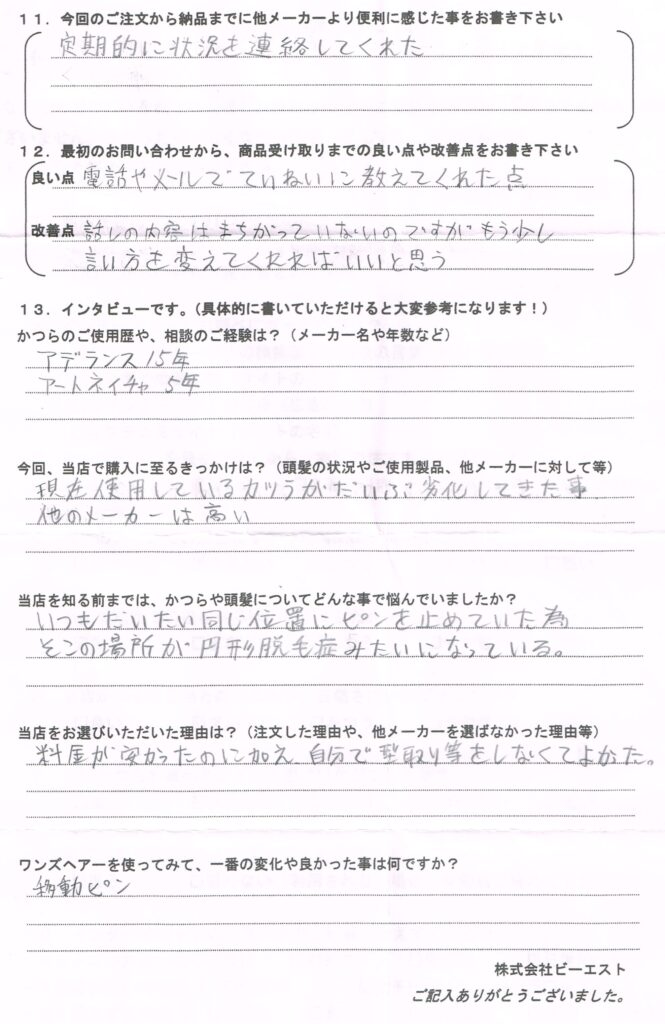 １１．今回のご注文から納品までに他メーカーより便利に感じた事をお書き下さい
定期的に状況を連絡してくれた
１２．最初のお問い合わせから、商品受け取りまでの良い点や改善点をお書き下さい
良い点 電話やメールでていねいに教えてくれた点
改善点 話しの内容はまちがっていないのですがもう少し
言い方を変えてくれればいいと思う
１３．インタビューです。（具体的に書いていただけると大変参考になります！）
かつらのご使用歴や、相談のご経験は？（メーカー名や年数など）
アデランス 15年
アートネイチャ 5年
今回、当店で購入に至るきっかけは？（頭髪の状況やご使用製品、他メーカーに対して等）
現在使用しているカツラがだいぶ劣化してきた事
他のメーカーは高い
当店を知る前までは、かつらや頭髪についてどんな事で悩んでいましたか？
いつもだいたい同じ位置にピンを止めていた為
そこの場所が円形脱毛症みたいになっている。
当店をお選びいただいた理由は？（注文した理由や、他メーカーを選ばなかった理由等）
料金が安かったのに加え、自分で型取り等をしなくてよかった。
ワンズヘアーを使ってみて、一番の変化や良かった事は何ですか？
移動ピン
株式会社ビーエスト
ご記入ありがとうございました。